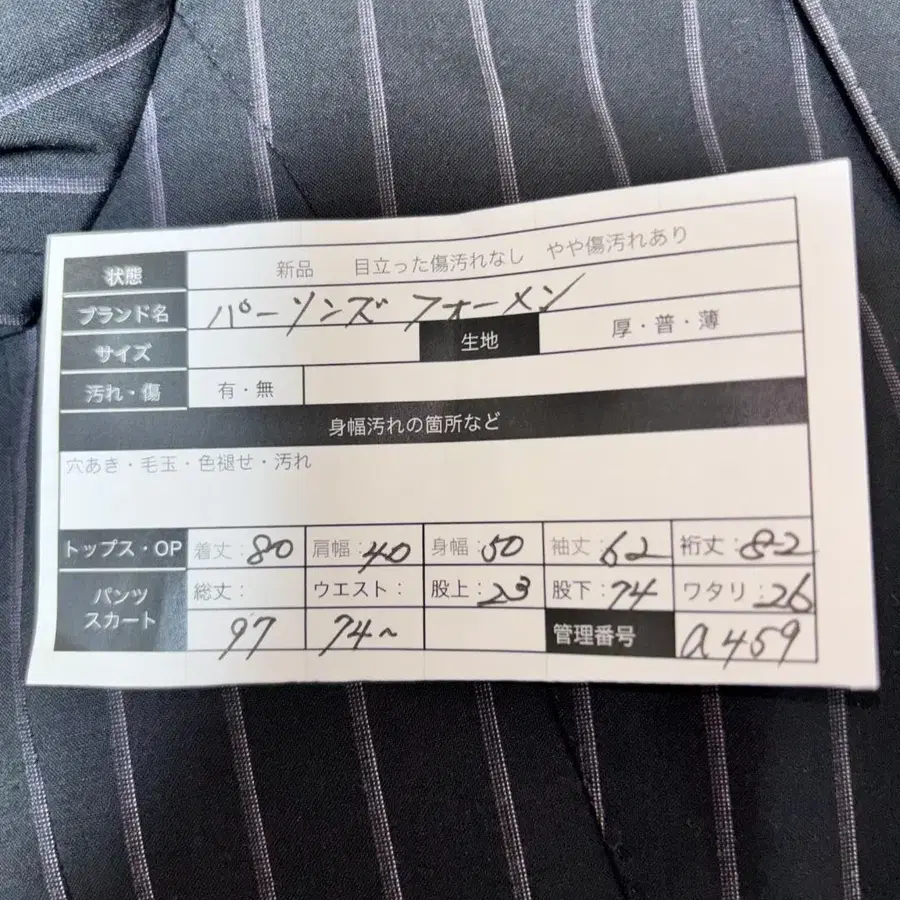 状態 新品 目立った傷汚れなし やや傷汚れあり
ブランド名 パーソンズ フォーメン
サイズ 生地 厚・普・薄
汚れ・傷 有・無
身幅汚れの箇所など
穴あき・毛玉・色褪せ・汚れ
トップス・OP 着丈:80 肩幅:40 身幅:50 袖丈:62 裄丈:82
パンツ スカート 総丈: ウエスト: 股上:23 股下:74 ワタリ:26
97 74~ 管理番号 a459